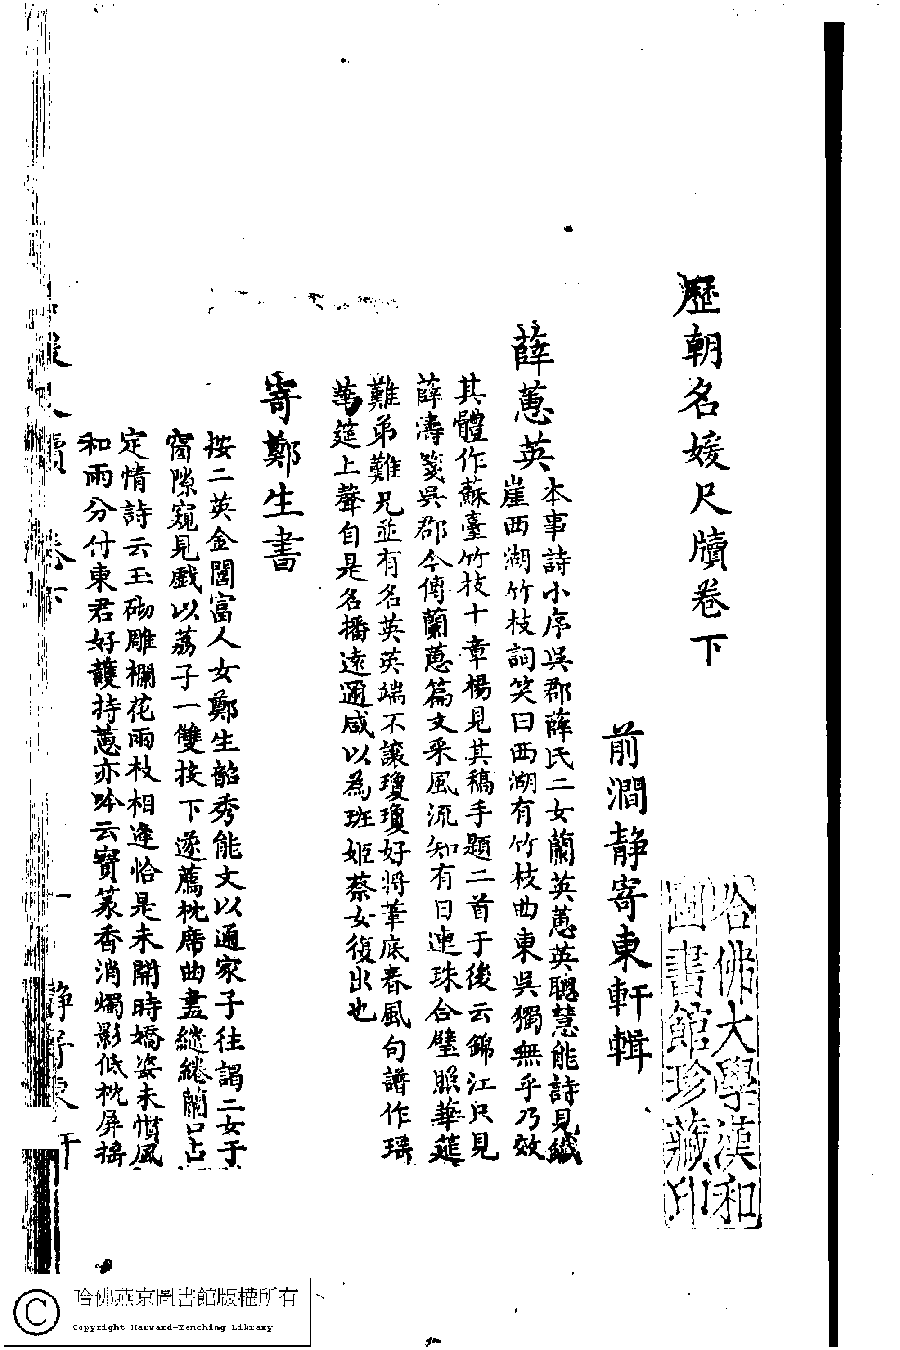 歷朝名媛尺牘卷下
前澗靜寄東軒輯
哈佛大學漢和
圖書館珍藏印
薛蕙英
本事詩小序吳郡薛氏二女蘭英蕙英聰慧能詩見鐵
崖西湖竹枝詞笑曰西湖有竹枝曲東吳獨無乎乃效
其體作蘇臺竹枝十章楊見其稿手題二首于後云錦江只見
薛濤箋吳郡今傳蘭蕙篇文采風流知有日連珠合璧照華筵
難弟難兄並有名英英端不讓瓊瓊好將筆底春風句譜作瑤
箏筵上聲自是名播遠邇咸以為班姬蔡女復出也
寄鄭生書
按二英金閶富人女鄭生韶秀能文以通家子往謁二女于
窗隙窺見戲以荔子一雙投下遂薦枕席曲盡繾綣蘭口占
定情詩云玉砌雕欄花兩枝相逢恰是未開時嬌姿未慣風
和雨分付東君好護持蕙亦吟云寶篆香消燭影低枕屏搖
卷下
一
哈佛燕京圖書館版權所有
Copyright Harvard-Yenching Library